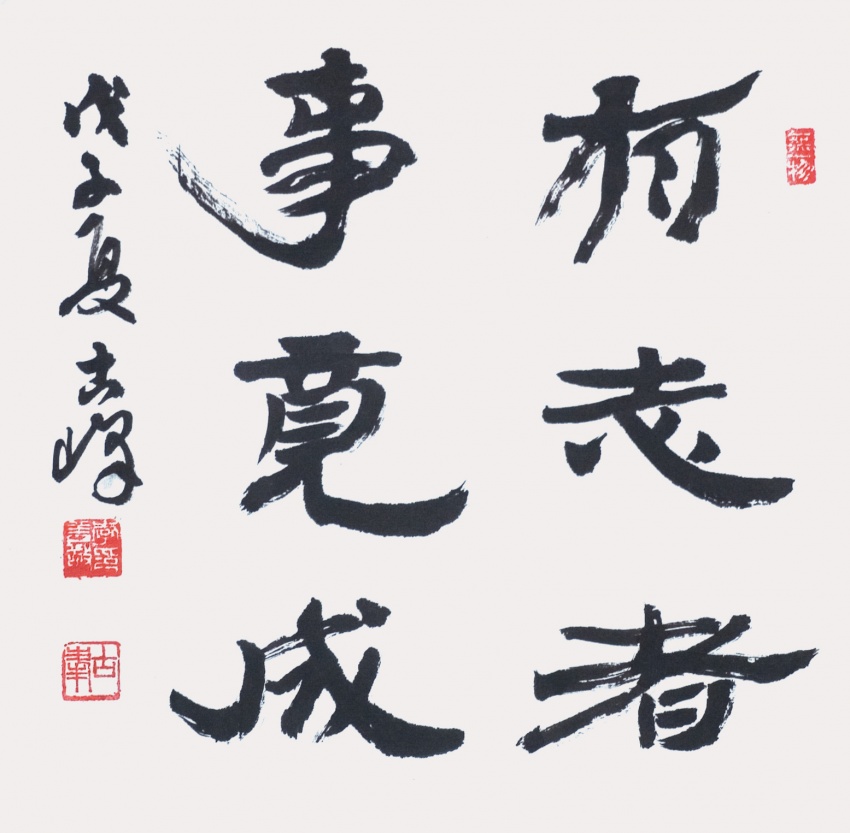 有志者
事竟成
戊子夏古峰